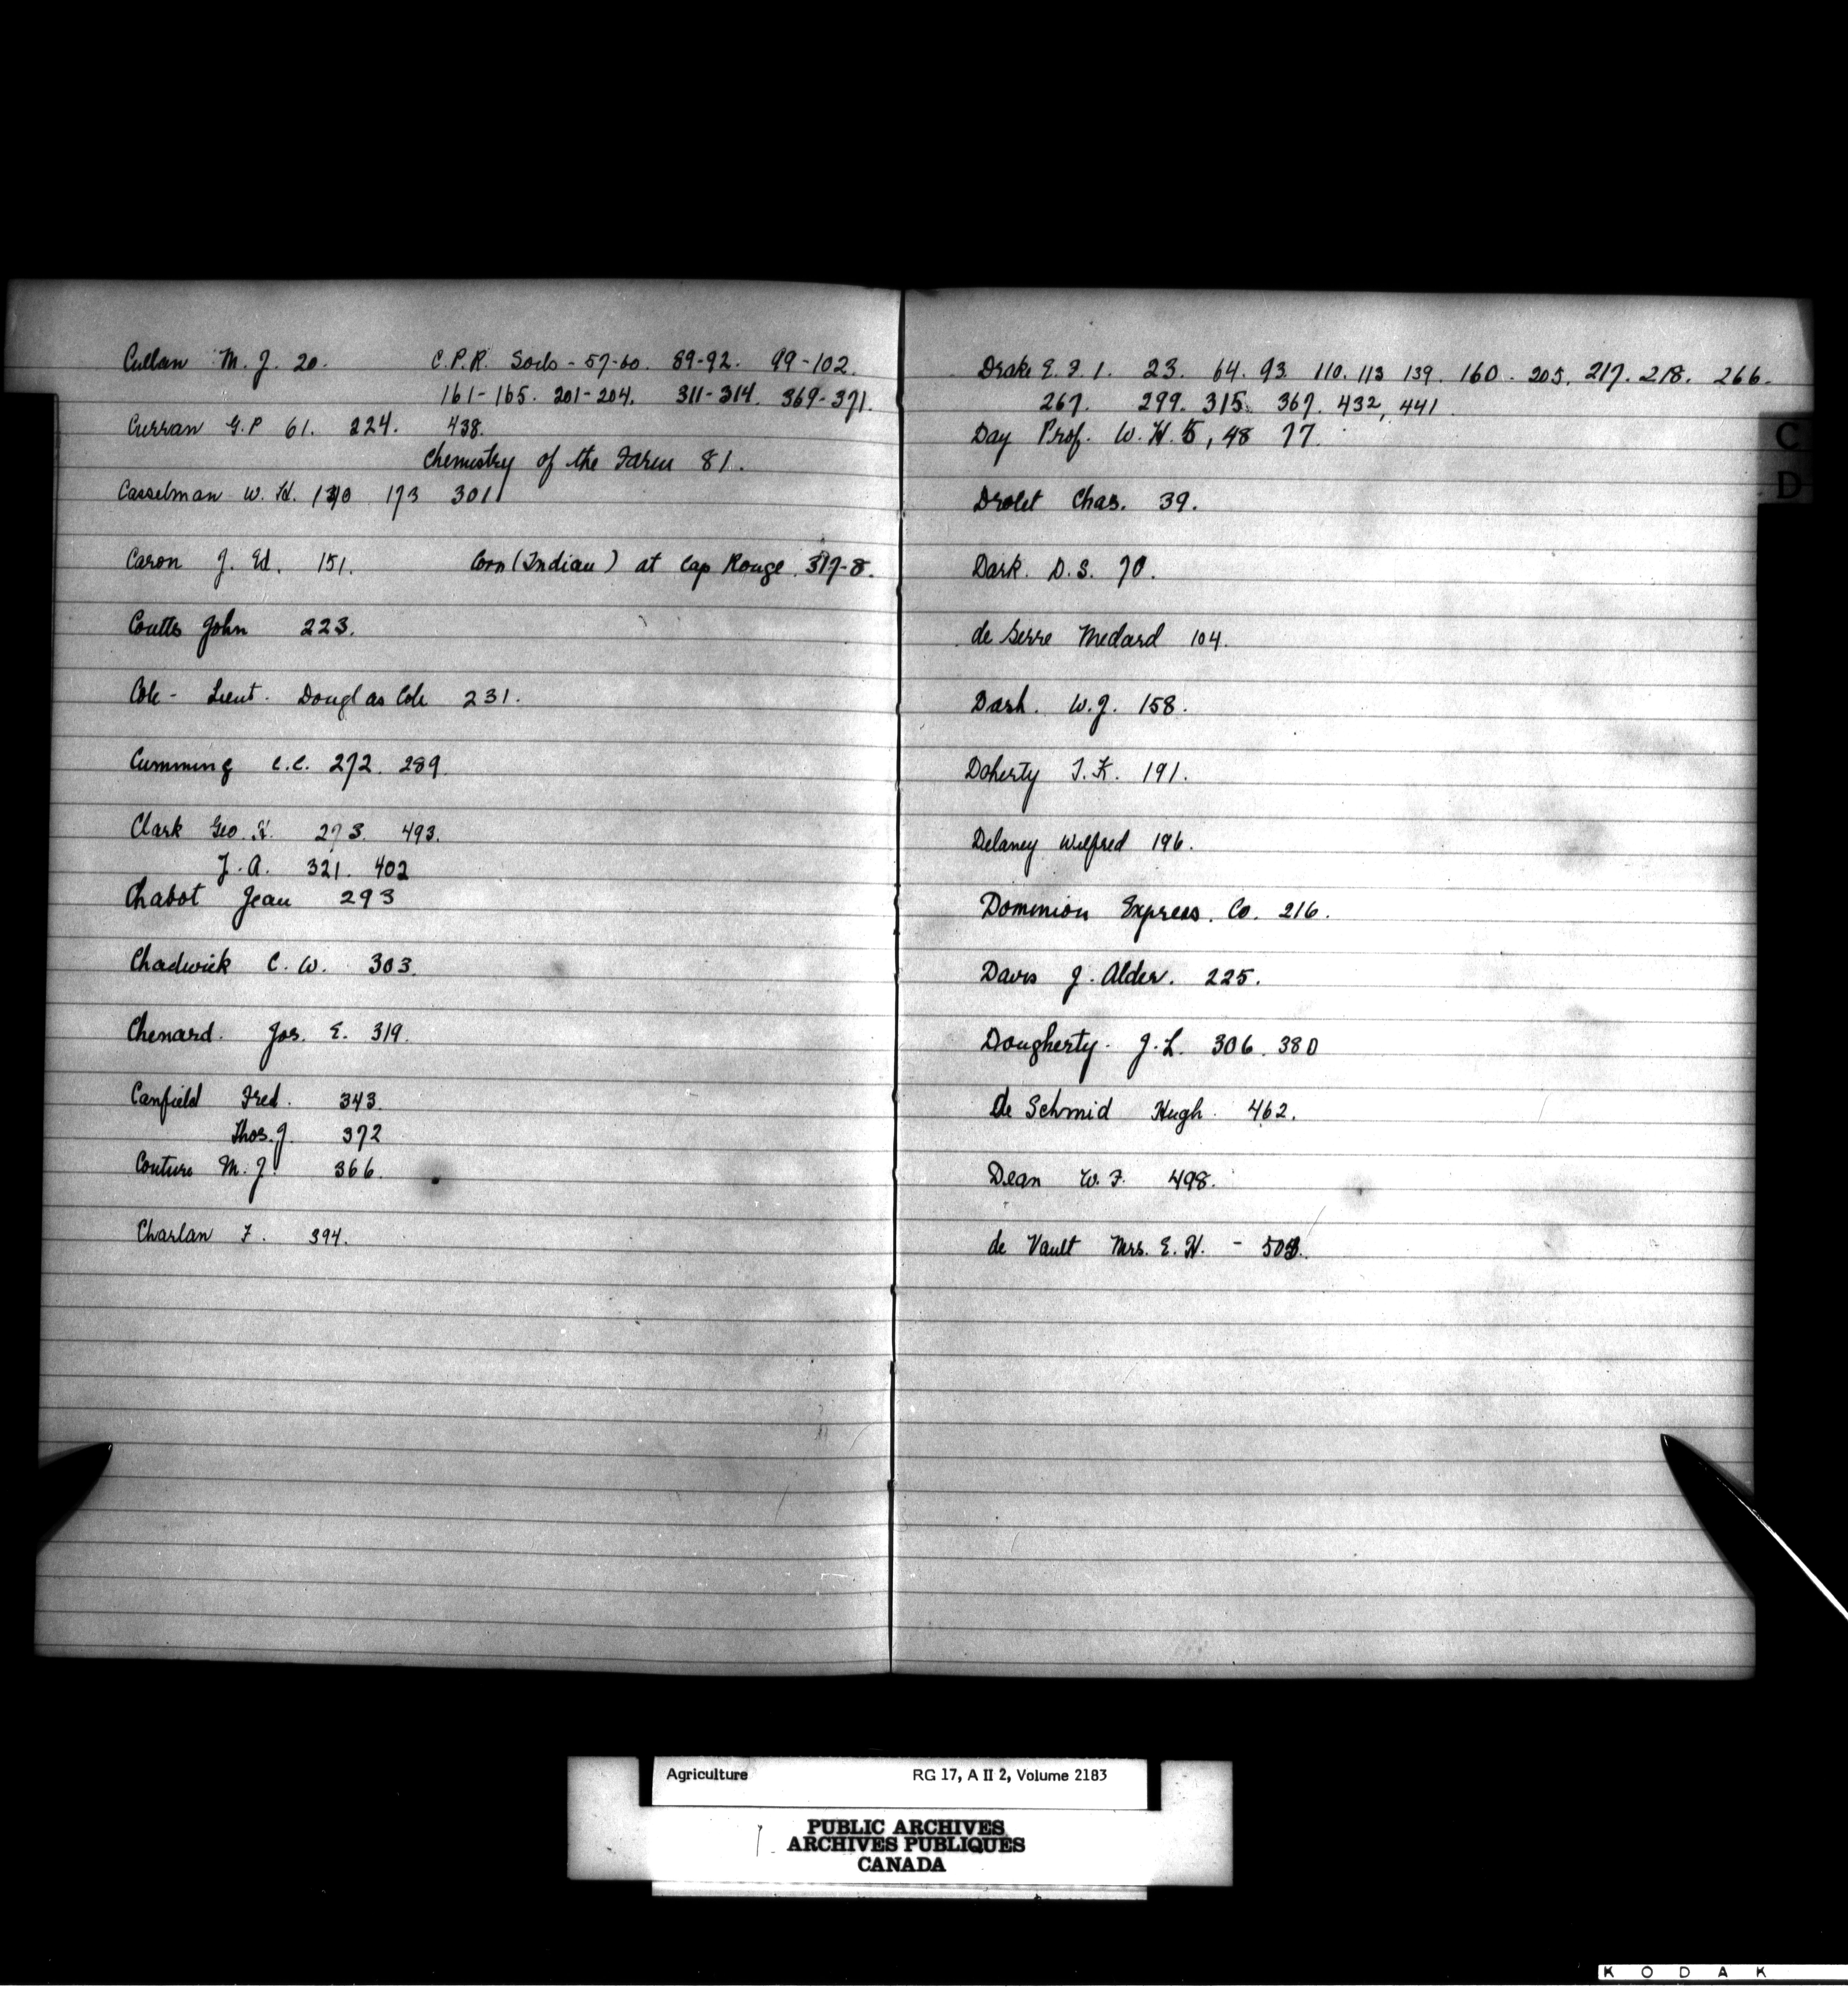 Cullan M. J. 20. C.P.R. Soils - 57-60. 89-92. 99-102.
161-165. 201-204. 311-314. 369-371.
Curran G.P 61. 224. 438.
Chemistry of the Farm 81.
Casselman W. H. 130 173 301
Caron J. Ed. 151. Corn (Indian) at Cap Rouge. 317-8.
Coutts John 223.
Cole - Lieut. Douglas Cole 231.
Cumming C.C. 272. 289.
Clark Geo. H. 273. 493.
J. A. 321. 402
Chabot Jean 293
Chadwick C. W. 303.
Chenard. Jos. E. 319.
Canfield Fred. 343.
Thos. J. 372
Couture M. J. 366.
Charlan F. 394.
Drake E. F. 1. 23. 64. 93. 110. 113 139. 160. 205. 217. 218. 266.
267. 299. 315. 367. 432, 441.
Day Prof. W. H. 5, 48 77.
Drolet Chas. 39.
Dark. D. S. 70.
de Serre Medard 104.
Dash. W. J. 158.
Doherty T. K. 191.
Delaney Wilfred 196.
Dominion Express. Co. 216.
Davis J. Alder. 225.
Dougherty. J. L. 306. 380
de Schmid Hugh. 462.
Dean W. F. 498.
de Vault Mrs. E. H. -
C
D
Agriculture RG 17, A II 2, Volume 2183
PUBLIC ARCHIVES
ARCHIVES PUBLIQUES
CANADA
KODAK